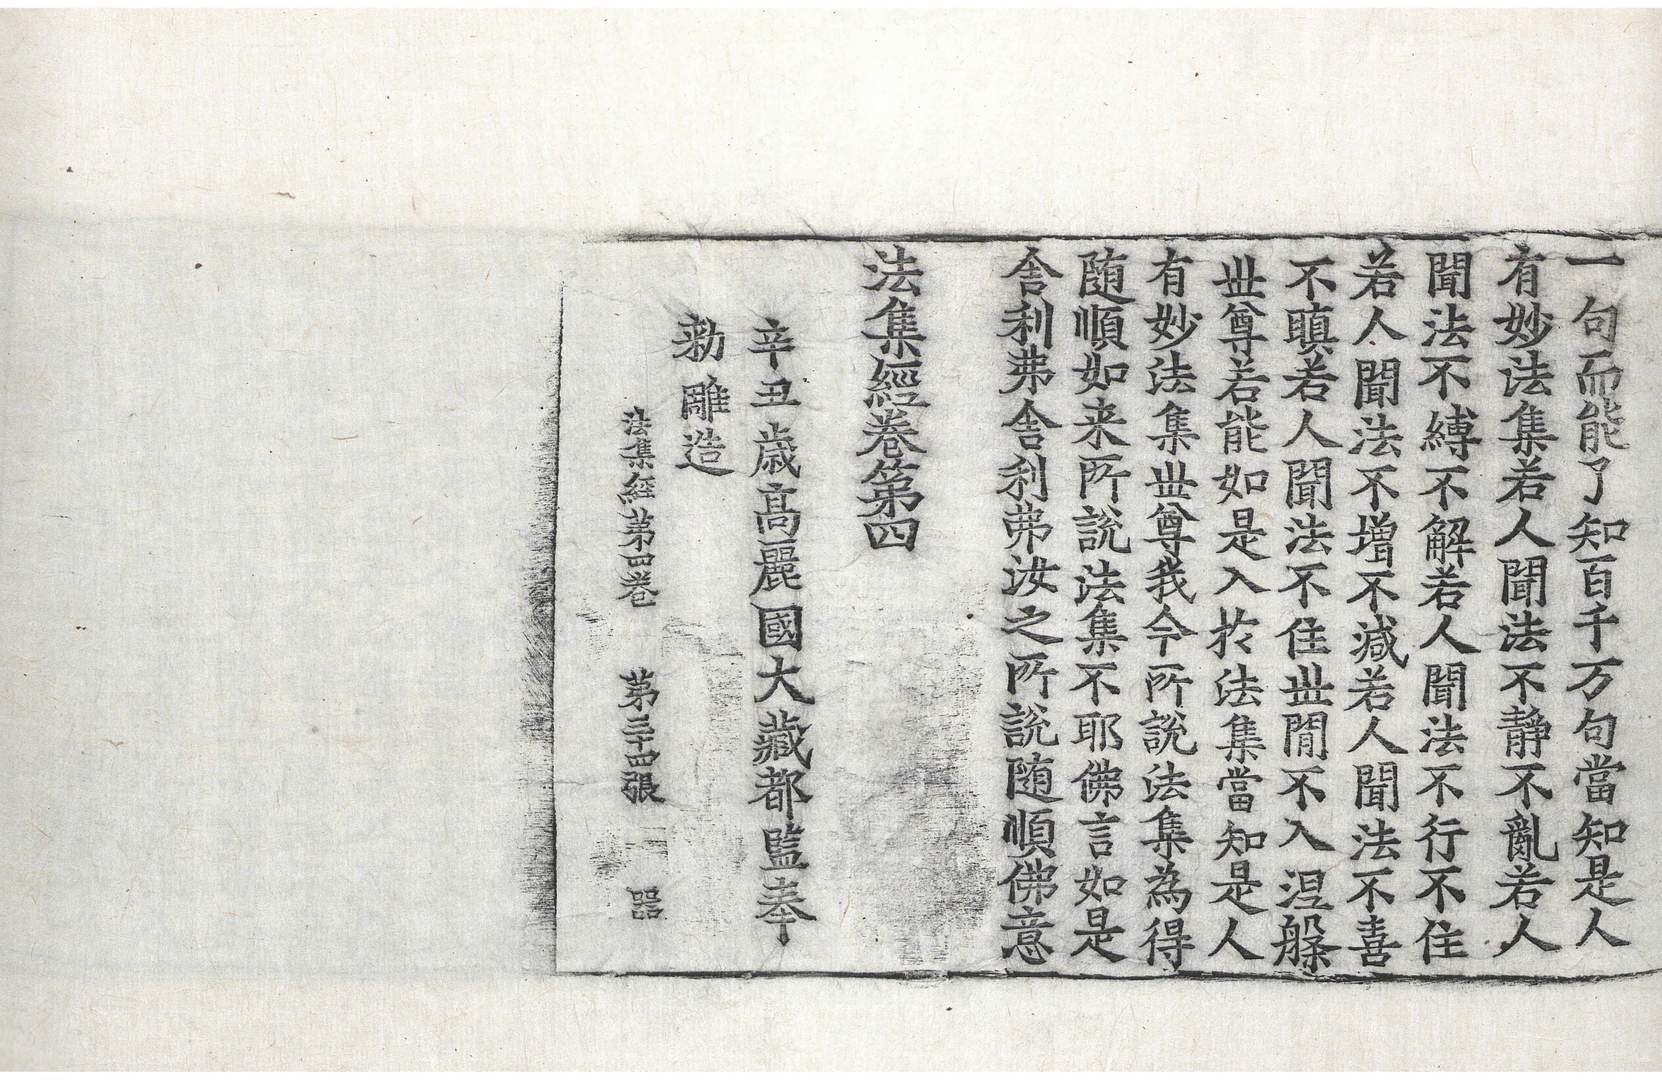 一句而能了知百千万句當知是人
有妙法集若人聞法不靜不亂若人
聞法不縛不解若人聞法不行不住
若人聞法不增不減若人聞法不喜
不瞋若人聞法不住世間不入涅槃
世尊若能如是入於法集當知是人
有妙法集世尊我今所說法集為得
随順如来所說法集不耶佛言如是
舍利弗舍利弗汝之所說随順佛意
法集經卷第四
辛丑歲高麗國大藏都監奉
勑雕造
法集經第四卷 第三十四張 器